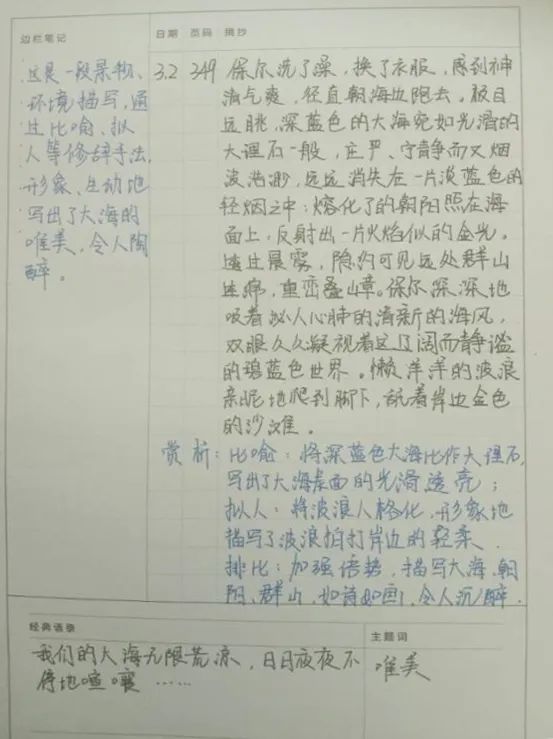 边栏笔记
日期 页码 摘抄
这是一段景物、
环境描写,通
过比喻、拟
人等修辞手法,
形象、生动地
写出了大海的
唯美,令人陶
醉。
3.2 349 保尔洗了澡,换了衣服,感到神
清气爽,径直朝海边跑去。极目
远眺,深蓝色的大海宛如光滑的
大理石一般,庄严、宁静而又烟
波浩渺,远远消失在一片淡蓝色的
轻烟之中;熔化了的朝阳照在海
面上,反射出一片火焰似的金光。
透过晨雾,隐约可见远处群山
连绵,重峦叠嶂。保尔深深地
吸着沁人心肺的清新的海风,
双眼久久凝视着这辽阔而静谧
的碧蓝色世界。懒洋洋的波浪
亲昵地爬到脚下,舐着岸边金色
的沙滩。
赏析:比喻:将深蓝色大海比作大理石,
写出了大海表面的光滑透亮;
拟人:将波浪人格化,形象地
描写了波浪拍打岸边的轻柔.
排比:加强语势,描写大海、朝
阳、群山,如诗如画,令人沉醉.
经典语录
我们的大海无限荒凉,日日夜夜不
停地喧嚷……
主题词
唯美